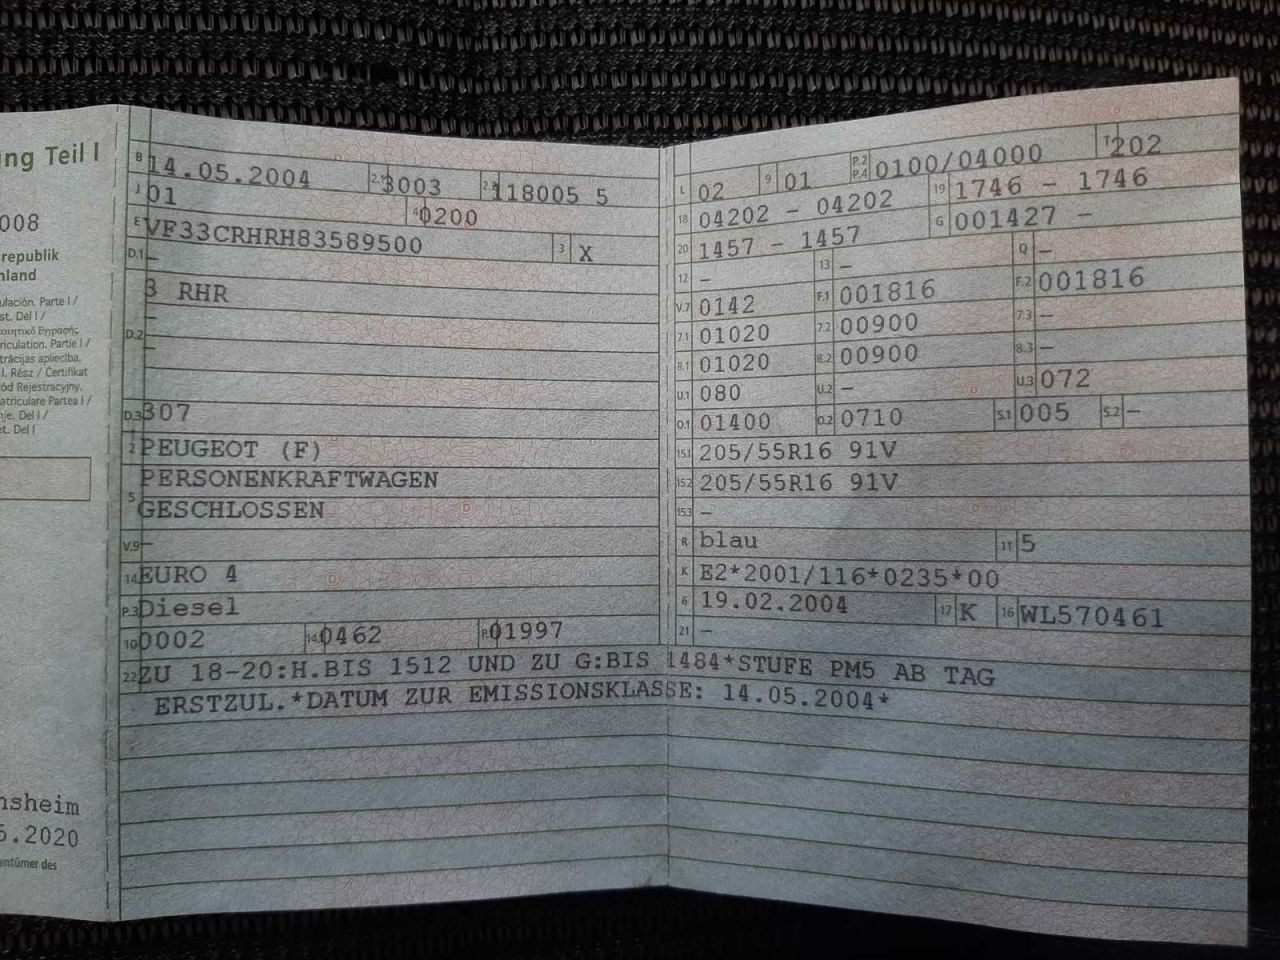 ng Teil I
008
republik
nland
ulación. Parte I /
st. Del I /
riculation. Partie I /
trācijas apliecība.
I. Rész / Certifikat
ód Rejestracyjny.
atriculare Partea I /
nje. Del I /
et. Del I
nsheim
5.2020
entümer des
B 14.05.2004 2.1 3003 2.2 118005 5
J 01 4 0200
E VF33CRHRH83589500 3 X
D.1 –
3 RHR
D.2 –
–
D.3 307
2 PEUGEOT (F)
5 PERSONENKRAFTWAGEN
GESCHLOSSEN
V.9 –
14 EURO 4
P.3 Diesel
10 0002 14.1 0462 P.1 01997
L 02 9 01 P.2 P.4 0100/04000 T 202
18 04202 – 04202 19 1746 – 1746
20 1457 – 1457 G 001427 –
12 – 13 – Q –
V.7 0142 F.1 001816 F.2 001816
7.1 01020 7.2 00900 7.3 –
8.1 01020 8.2 00900 8.3 –
U.1 080 U.2 – U.3 072
O.1 01400 O.2 0710 S.1 005 S.2 –
15.1 205/55R16 91V
15.2 205/55R16 91V
15.3 –
R blau 11 5
K E2*2001/116*0235*00
6 19.02.2004 17 K 16 WL570461
21 –
22 ZU 18-20:H.BIS 1512 UND ZU G:BIS 1484*STUFE PM5 AB TAG
ERSTZUL.*DATUM ZUR EMISSIONSKLASSE: 14.05.2004*